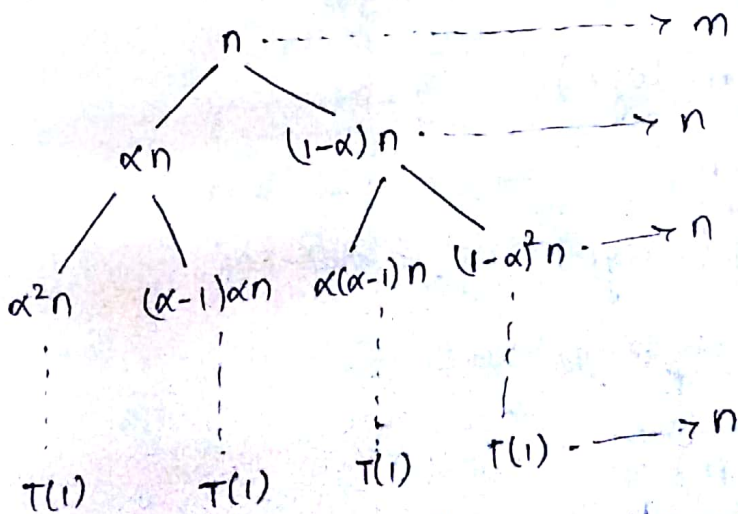 n → n
αn (1-α)n → n
α²n (α-1)αn α(α-1)n (1-α)²n → n
T(1) T(1) T(1) T(1) → n